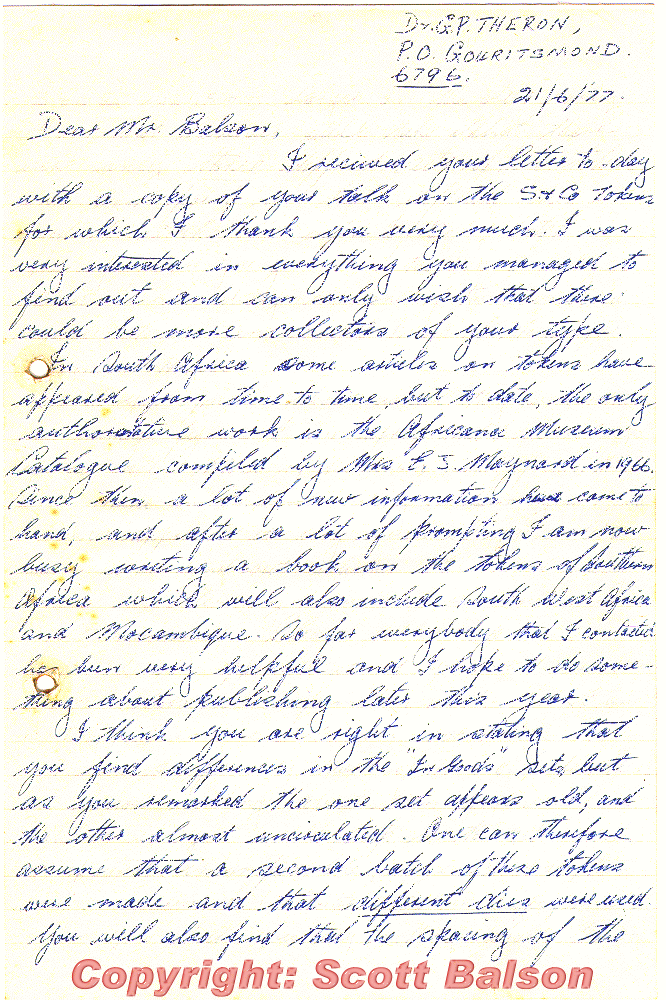 Dr. G.P. THERON,
P.O. GOURITSMOND.
6796.
21/6/77.
Dear Mr. Balson,
I recieved your letter to-day
with a copy of your talk on the S & Co Tokens
for which I thank you very much. I was
very interested in everything you managed to
find out and can only wish that there
could be more collectors of your type.
In South Africa some articles on tokens have
appeared from time to time, but to date, the only
authoratative work is the Africana Museum
Catalogue compiled by Mrs E. J. Maynard in 1966.
Since then a lot of new information have come to
hand, and after a lot of prompting I am now
busy writing a book on the tokens of Southern
Africa which will also include South West Africa
and Mocambique. So far everybody that I contacted
has been very helpful and I hope to do some-
thing about publishing later this year.
I think you are right in stating that
you find differences in the "In Goods" sets, but
as you remarked the one set appears old, and
the other almost uncirculated. One can therefore
assume that a second batch of these tokens
were made and that different dies were used.
You will also find that the spacing of the
Copyright: Scott Balson